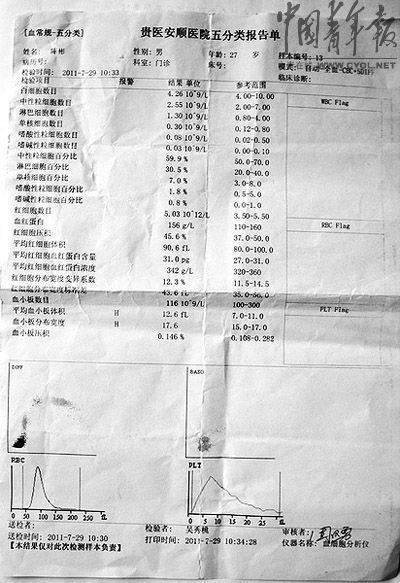 中国青年报
WWW.CYOL.NET
[血常规-五分类]
贵医安顺医院五分类报告单
姓名: 彬 性别: 男 年龄: 27 岁 样本编号: 13
病历号: 科室: 门诊 床号: 模式: 自动-全血-CBC+5DIFF
检验时间: 2011-7-29 10:33 临床诊断:
检验项目 报警 结果 单位 参考范围
白细胞数目 4.26 10^9/L 4.00-10.00
中性粒细胞数目 2.55 10^9/L 2.00-7.00
淋巴细胞数目 1.30 10^9/L 0.80-4.00
单核细胞数目 0.30 10^9/L 0.12-0.80
嗜酸性粒细胞数目 0.08 10^9/L 0.02-0.50
嗜碱性粒细胞数目 0.03 10^9/L 0.00-0.10
中性粒细胞百分比 59.9 % 50.0-70.0
淋巴细胞百分比 30.5 % 20.0-40.0
单核细胞百分比 7.0 % 3.0-8.0
嗜酸性粒细胞百分比 1.8 % 0.5-5.0
嗜碱性粒细胞百分比 0.8 % 0.0-1.0
红细胞数目 5.03 10^12/L 3.50-5.50
血红蛋白 156 g/L 110-160
红细胞压积 45.6 % 37.0-50.0
平均红细胞体积 90.6 fL 80.0-100.0
平均红细胞血红蛋白含量 31.0 pg 27.0-31.0
平均红细胞血红蛋白浓度 342 g/L 320-360
红细胞分布宽度变异系数 12.3 % 11.5-14.5
红细胞分布宽度标准差 43.6 fL 35.0-56.0
血小板数目 116 10^9/L 100-300
平均血小板体积 H 12.6 fL 7.0-11.0
血小板分布宽度 H 17.6 15.0-17.0
血小板压积 0.146 % 0.108-0.282
WBC Flag
RBC Flag
PLT Flag
DIFF
BASO
RBC
PLT
0 50 100 200 fL
0 5 10 20 fL
送检者: 检验者: 吴秀桃 审核者:
送检时间: 2011-7-29 10:30 打印时间: 2011-7-29 10:34:28 仪器名称: 血细胞分析仪
【本结果仅对此次检测样本负责】